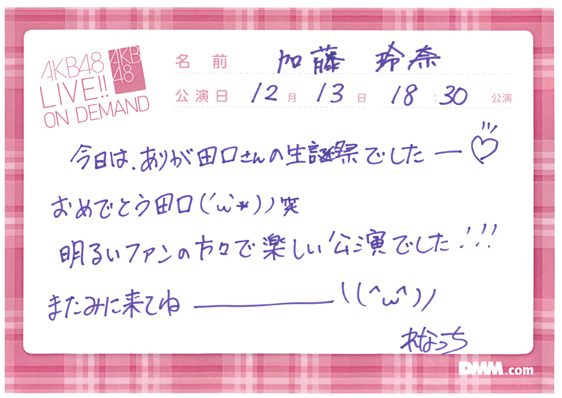 AKB48
LIVE!!
ON DEMAND
AKB
48
名前 加藤 玲奈
公演日 12月 13日 18:30 公演
今日は、ありが田口さんの生誕祭でしたー♡
おめでとう田口(´ω`*)ノ笑
明るいファンの方々で楽しい公演でした!!!
またみに来てねーーー\((^ω^)ノ
れなっち
DMM.com